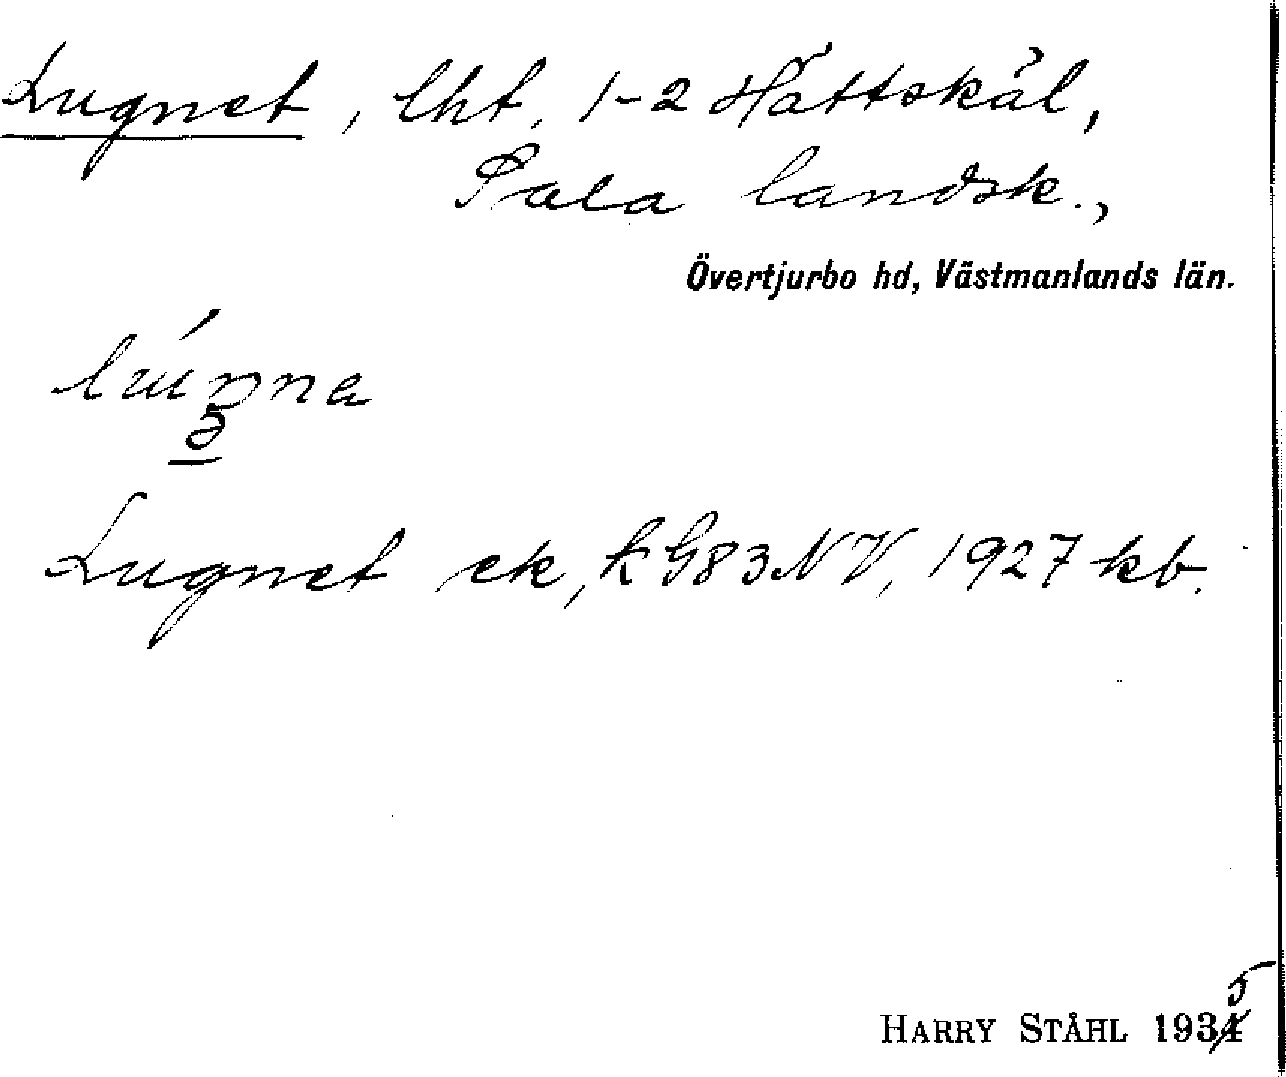 Lugnet, lht, 1-2 Hättskäl,
Sala landsk.,
Övertjurbo hd, Västmanlands län.
Lugnet ek, k G83NV, 1927 kb.
HARRY STÅHL 1935